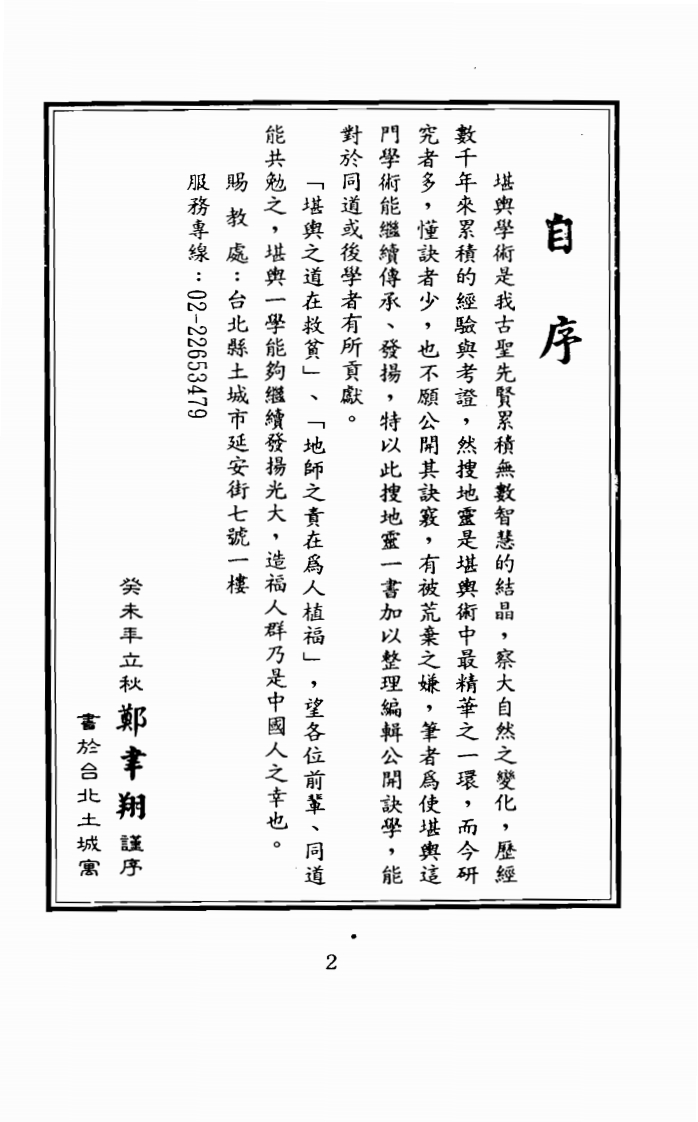 自序
堪輿學術是我古聖先賢累積無數智慧的結晶，察大自然之變化，歷經
數千年來累積的經驗與考證，然搜地靈是堪輿術中最精華之一環，而今研
究者多，懂訣者少，也不願公開其訣竅，有被荒棄之嫌，筆者爲使堪輿這
門學術能繼續傳承、發揚，特以此搜地靈一書加以整理編輯公開訣學，能
對於同道或後學者有所貢獻。
「堪輿之道在救貧」、「地師之責在爲人植福」，望各位前輩、同道
能共勉之，堪輿一學能夠繼續發揚光大，造福人群乃是中國人之幸也。
賜教處：台北縣土城市延安街七號一樓
服務專線：02-22653479
癸未年立秋 鄭聿翔 謹序
書於台北土城寓
2